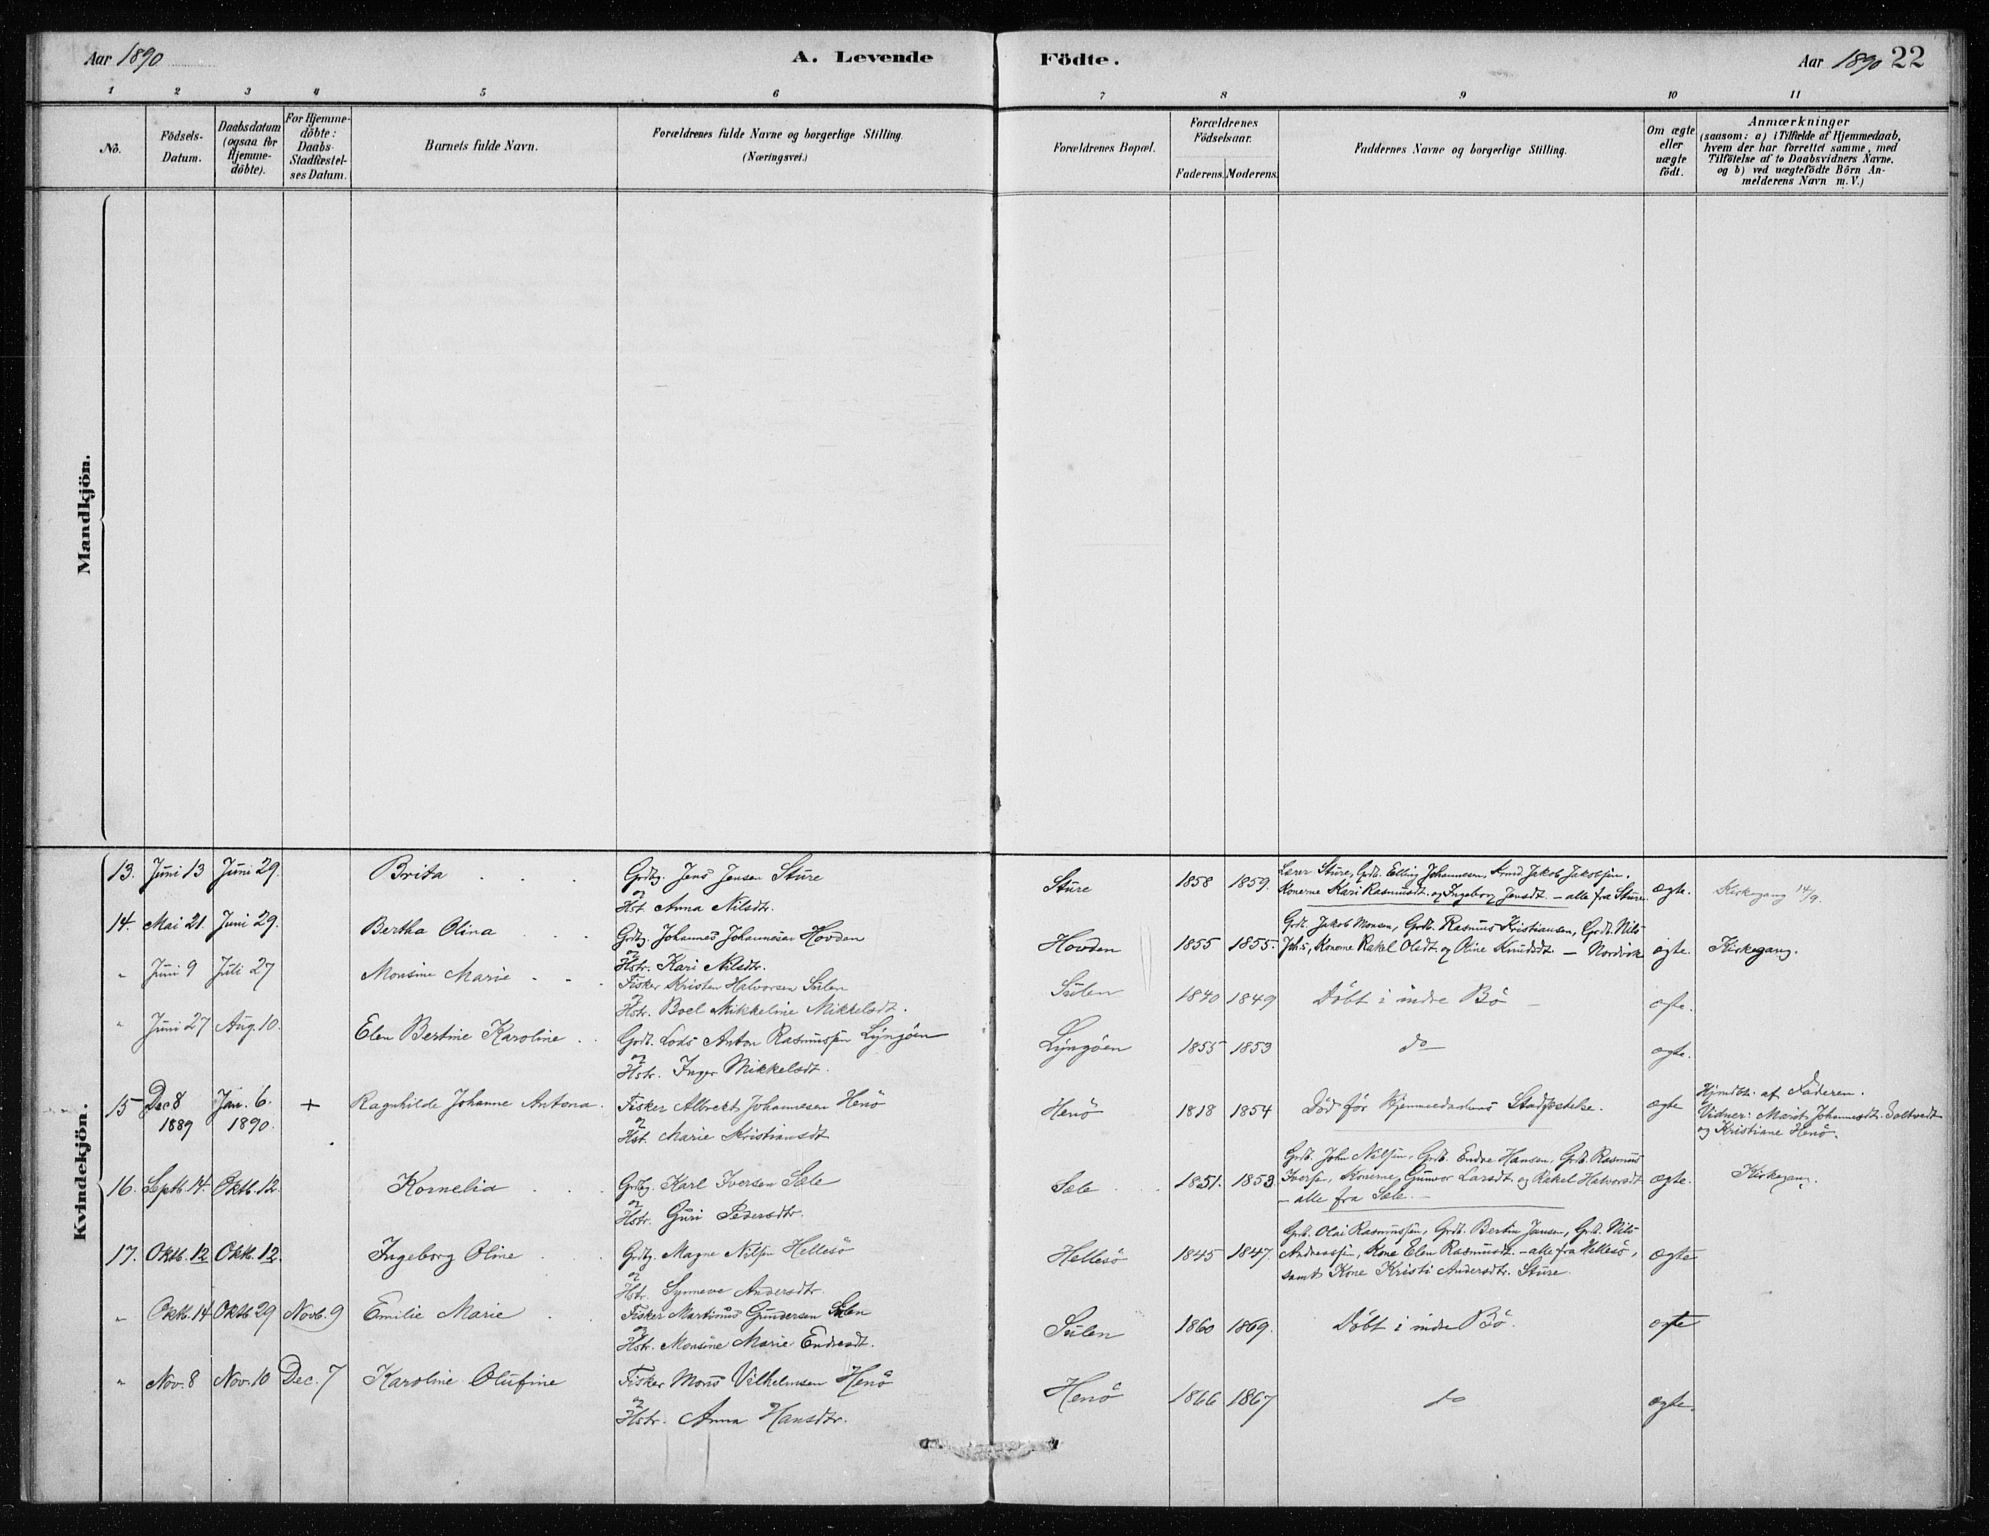 Aar 1890
A. Levende Födte.
Aar 1890 22
1 2 3 4 5 6 7 8 9 10 11
No.
Födsels-
Datum.
Daabsdatum
(ogsaa for
Hjemme-
döbte).
For Hjemme-
döbte:
Daabs-
Stadfæstel-
ses Datum.
Barnets fulde Navn.
Forældrenes fulde Navne og borgerlige Stilling.
(Næringsvei.)
Forældrenes Bopæl.
Forældrenes
Födselsaar.
Faderens. Moderens.
Faddernes Navne og borgerlige Stilling.
Om ægte
eller
uægte
födt.
Anmærkninger
(saasom: a) i Tilfælde af Hjemmedaab,
hvem der har forrettet samme, med
Tilföielse af to Daabsvidners Navne,
og b) ved uægtefödte Börn An-
melderens Navn m. V.)
Mandkjön.
Kvindekjön.
13. Juni 13 Juni 29. Brita Grdbg. Jens Jensen Sture
og
Hst. Anna Nilsdtr.
Sture 1858 1859.
Lærer Sture, Grdb. Elling Johannesen, Jakob Jakobsen.
Konerne Kari Rasmusdt. og Ingeborg Jensdt. – alle fra Sture
ægte. Kirkegang 14/9.
14. Mai 21. Juni 29. Bertha Olina Grdbg. Johannes Johannesen Hovden
og
Hstr. Kari Nilsdtr.
Hovden 1855 1855
Grdb. Jakob Monsen, Grdb. Rasmus Kristiansen, Grdb. Nils
Johs, Konerne Rakel Olsdt. og Oline Knudsdt. – Nordvik
ægte. Kirkegang.
" Juni 9 Juli 27 Monsine Marie Fisker Kristen Halvorsen Sulen
og
Hstr. Boel Mikkeline Mikkelsdt.
Sulen 1840 1849 Döbt i indre Bö ægte.
" Juni 27 Aug. 10. Elen Bertine Karoline Grdb. Lods Anton Rasmussen Lyngöen
og
Hstr. Inger Mikkelsdt.
Lyngöen 1855 1853 do ægte.
15 Dec 8 Jan. 6. + Ragnhilde Johanne Antona. Fisker Albrekt Johannesen Henö
1889 1890.
og
Hst. Marie Kristiansdt
Henö 1818 1854 Död för Hjemmedaabens Stadfæstelse. ægte
Hjmdbt. af Faderen.
Vidner: Marit Johannesdt. Toltvedt
og Kristiane Henö.
16. Septb. 14. Oktb. 12. Kornelia Grdbg. Karl Iversen Sæle
og
Hstr. Guri Pedersdtr.
Sæle 1851. 1853.
Grdb. John Nilsen, Grdb. Endre Hansen, Grdb. Rasmus
Iversen, Konerne Gunvor Larsdt. og Rakel Halvorsdt
– alle fra Sæle. –
ægte. Kirkegang.
17. Oktb. 12 Oktb. 12. Ingeborg Oline Grdbg. Magne Nilsen Hellesö
og
Hstr. Synneve Andersdtr.
Hellesö 1845 1847.
Grdb. Olai Rasmussen, Grdb. Bertin Jansen, Grdb. Nils
Andreassen, Kone Elen Rasmusdt. – alle fra Hellesö,
samt Kone Kristi Andersdtr. Sture.
ægte
" Oktb. 14 Oktb 29 Novb. 9 Emilie Marie Fisker Martinus Gundersen Sulen
og
Hstr. Monsine Marie Endresdt.
Sulen 1860 1869. Döbt i indre Bö. ægte
" Nov. 8 Nov. 10 Dec. 7 Karoline Olufine Fisker Mons Vilhelmsen Henö
og
Hstr. Anna Hansdtr.
Henö 1866 1867 do ægte.